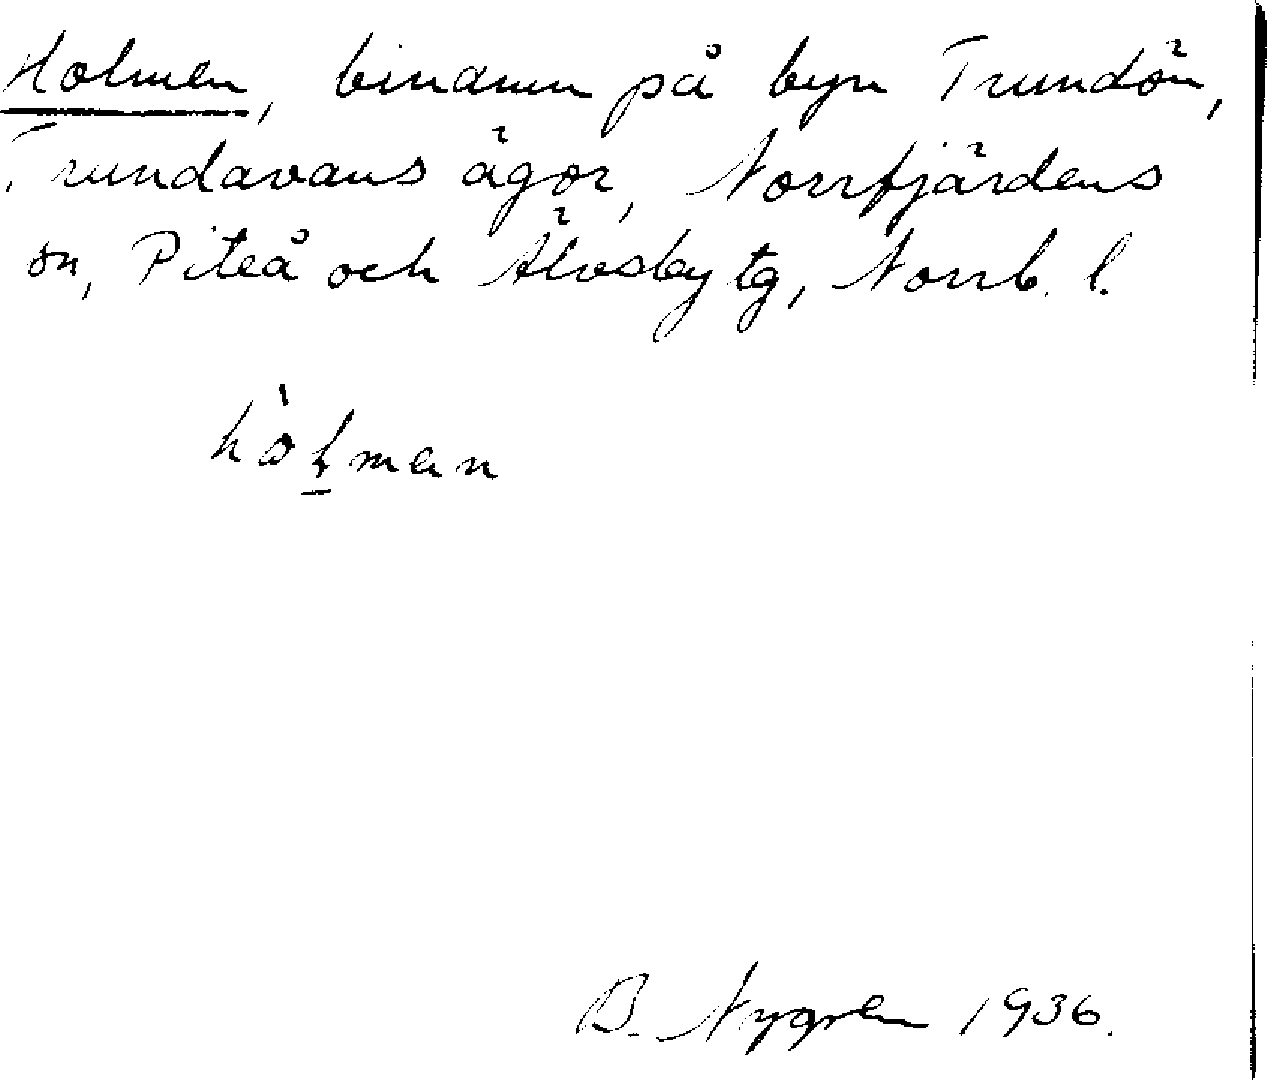 Holmen, binamn på byn Trundön,
Trundavans ägor, Norrfjärdens
sn, Piteå och Älvsby tg, Norrb. l.
hòḷman
B. Nygren 1936.